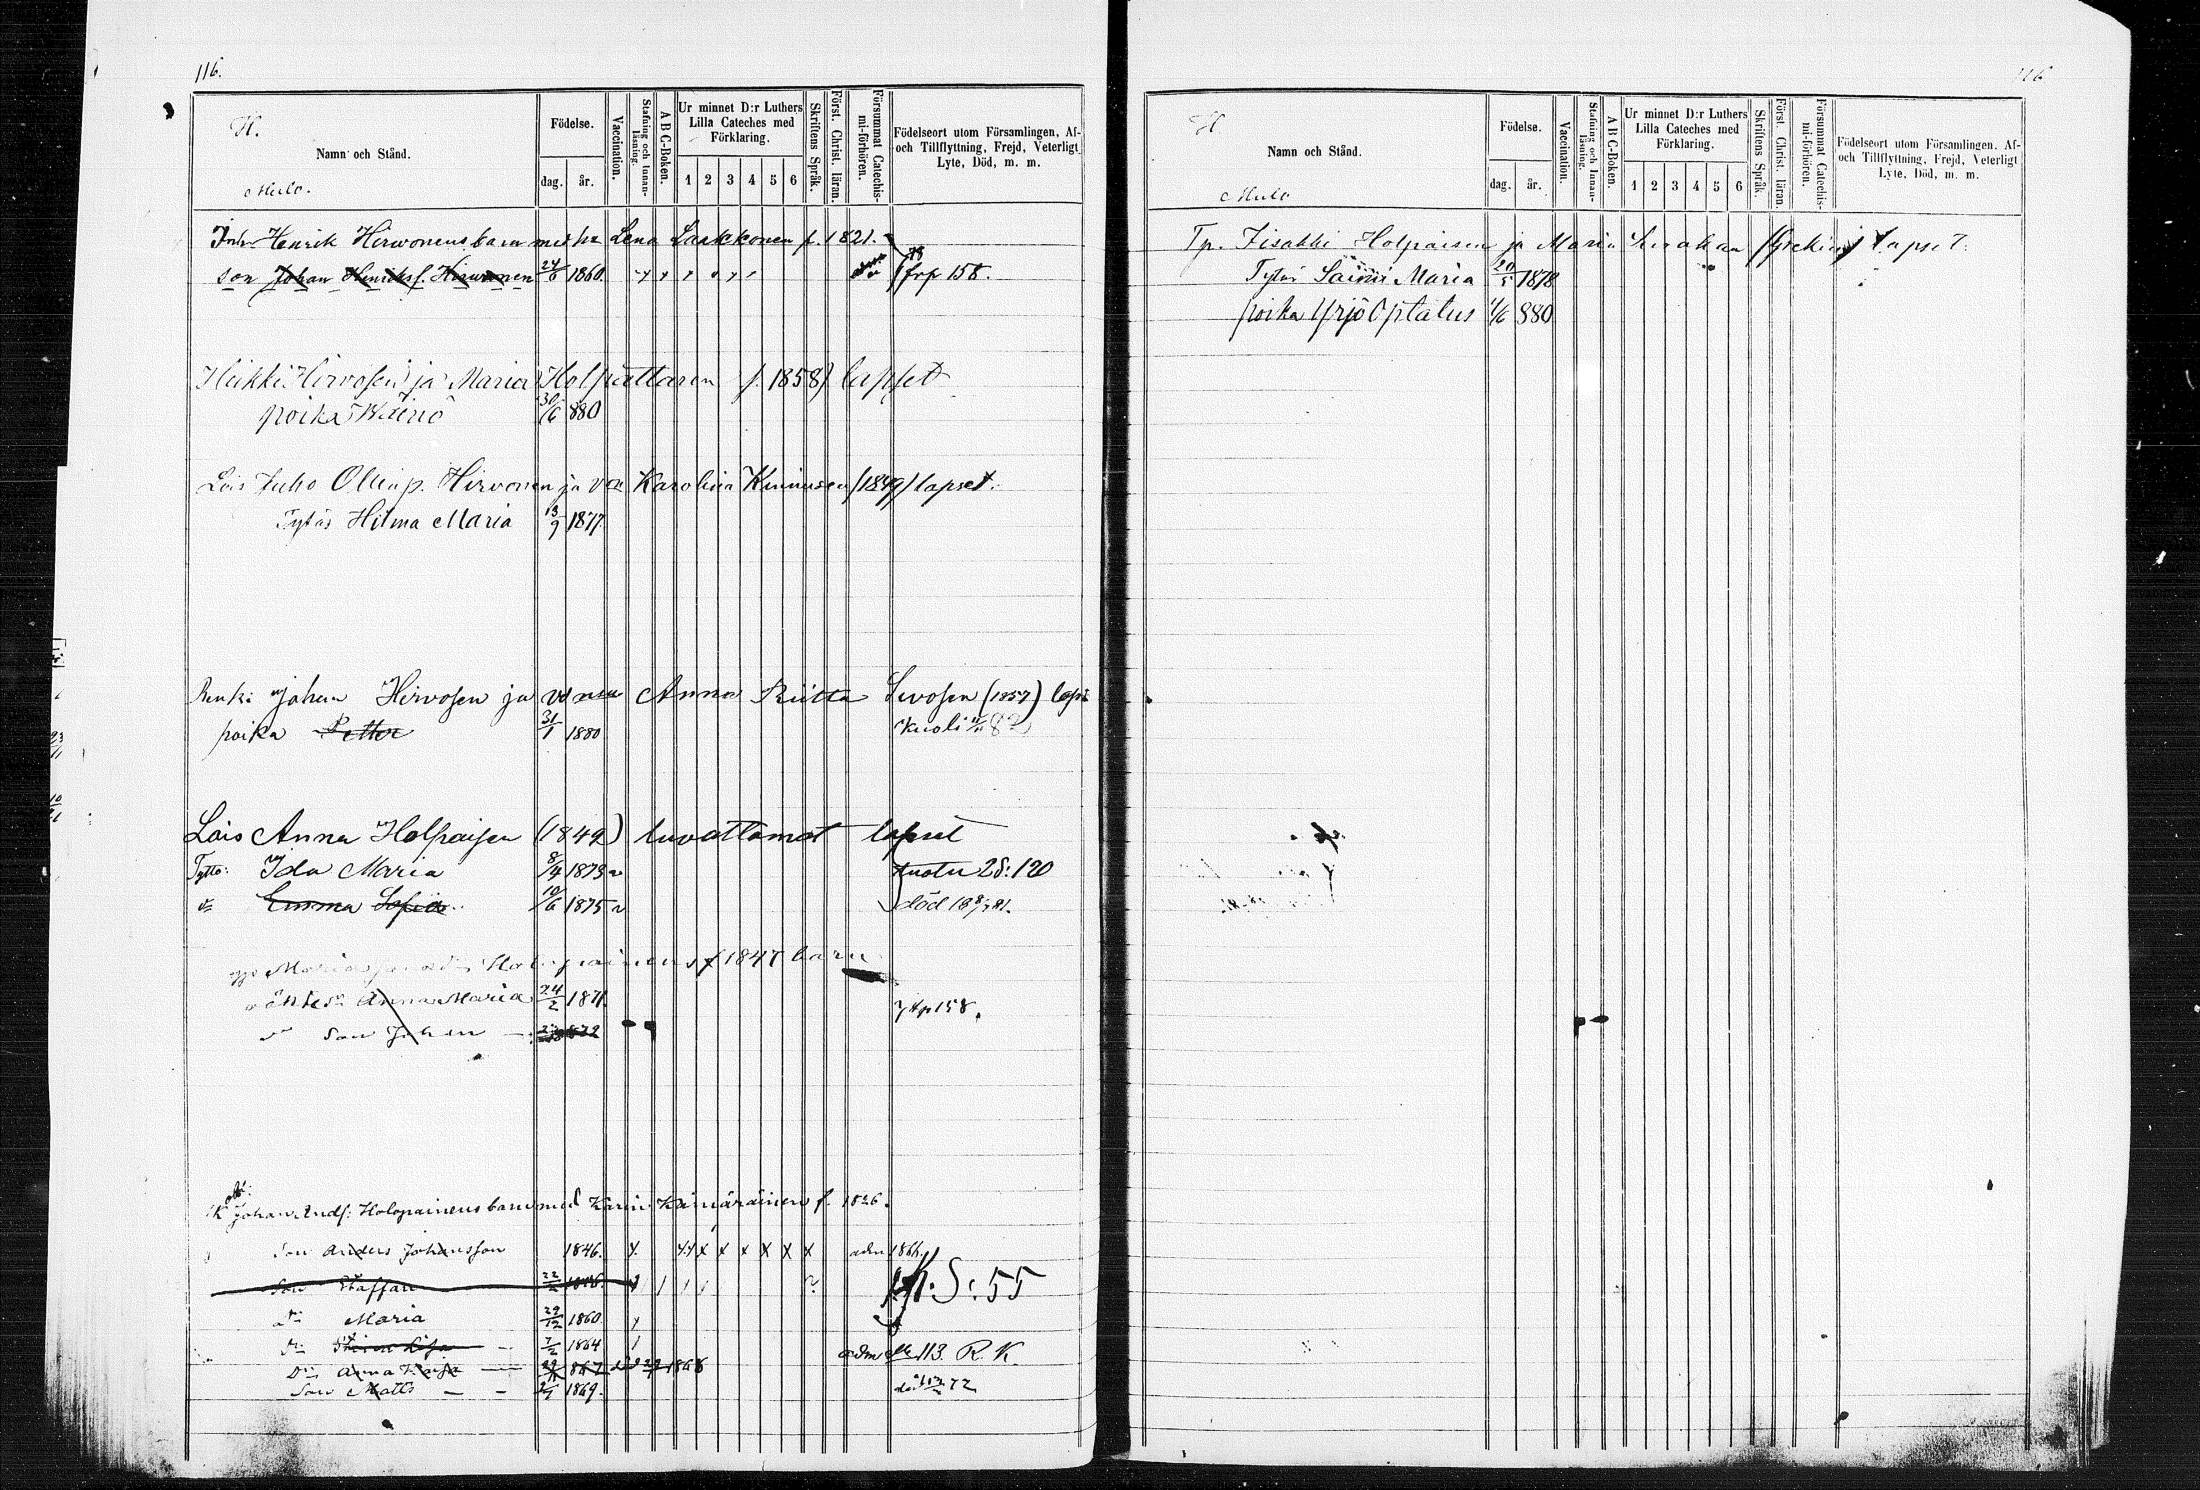 116.
H.
Namn och Stånd.
Mulo.
Födelse.
dag. år.
Vaccination.
Stafning och Innan-läsning.
A B C-Boken.
Ur minnet D:r Luthers Lilla Cateches med Förklaring.
1 2 3 4 5 6
Skriftens Språk.
Först. Christ. läran.
Försummat Catechis-mi-förhören.
Födelseort utom Församlingen, Af- och Tillflyttning, Frejd, Veterligt Lyte, Död, m. m.
Inh. Henrik Hirwonens barn med h. Lena Laakkonen f. 1821.
son Johan Henriksf. Hirwonen 24/6 1860. 78 frp 158.
Heikki Hirvosen ja Maria Holpattaren f. 1858) lapset
poika Wäinö 30/6 880
Lois Juho Ollinp. Hirvonen ja von Karolina Kinnusen (1849) lapset.
Tytär Hilma Maria 13/9 1877.
Renki Johan Hirvosen ja Anna Riitta Sivosen (1857) laps
poika Petter 31/1 1880 Kuoli 82
Lois Anna Holpaisen (1842) luvattomat lapset
Tyttö: Ida Maria 8/4 1873 muotu 2S:120
d:o Emma Sofia 10/6 1875 död 18 81.
Maria Holopainens f 1847 barn
Anna Maria 24/2 1871. frp 158.
son Johan 1872
Johan Andf: Holopainens barn med Karin Kämäräinen f. 1826.
Son Anders Johansson 1846. x x x x x x adm 186
Son Staffan 22 S: 55
d:o Maria 29/12 1860.
d:o Lisa 7/2 1864 adm 113. R. K.
D:o Anna Kaisa 867 1868
Son Matts 1869. död 72
116
H
Namn och Stånd.
Mulo
Födelse.
dag. år.
Vaccination.
Stafning och Innan-läsning.
A B C-Boken.
Ur minnet D:r Luthers Lilla Cateches med Förklaring.
1 2 3 4 5 6
Skriftens Språk.
Först. Christ. läran.
Försummat Catechis-mi-förhören.
Födelseort utom Församlingen, Af- och Tillflyttning, Frejd, Veterligt Lyte, Död, m. m.
Tp. Iisakki Holpaisen ja Maria lapset.
Tytär Saimi Maria 20/5 1878
poika Yrjö Optatus 1/6 880